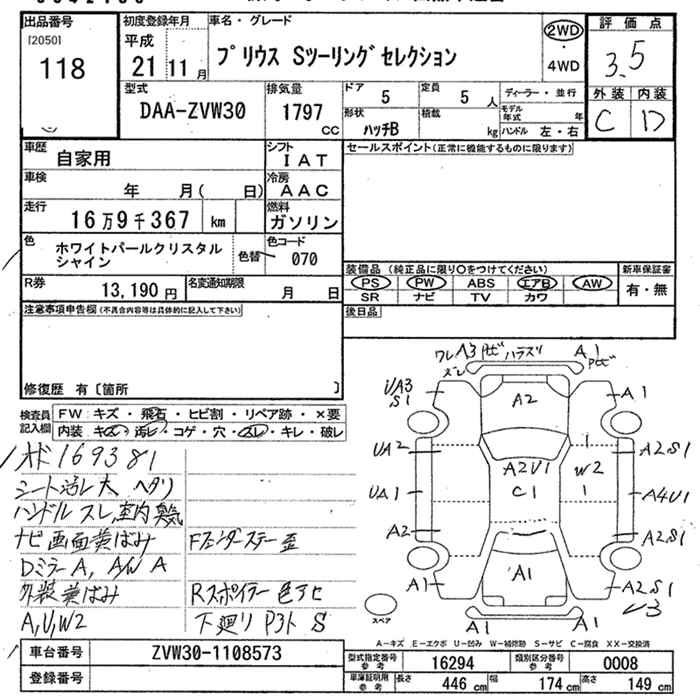 出品番号 初度登録年月 車名・グレード 評価点
[2050]
118
平成
21 11月
プリウス Sツーリングセレクション
2WD
・
4WD
3.5
型式 排気量 ドア 定員 ディーラー・並行 外装 内装
DAA-ZVW30 1797 CC 5 5 人
形状 積載 モデル年式 年
ハッチB kg ハンドル 左・右
C D
車歴 自家用 シフト IAT セールスポイント(正常に機能するものに限ります)
車検 年 月( 日) 冷房 AAC
走行 16万9千367 km 燃料 ガソリン
色 ホワイトパールクリスタル
シャイン 色替 色コード 070
装備品 (純正品に限り○をつけてください) 新車保証書
R券 13,190円 名変通知期限 月 日
PS PW ABS エアB AW 有・無
SR ナビ TV カワ
注意事項申告欄(不具合内容等は具体的に記入して下さい) 後日品
修復歴 有〔箇所 〕
検査員 FW:キズ・飛石・ヒビ割・リペア跡・×要
記入欄 内装 キズ・汚レ・コゲ・穴・スレ・キレ・破レ
ワレ A3 ハラスリ A1
ズレ
UA3
S1 A2 A1
UA2 A2S1
A2U1 W2
UA1 C1 A4U1
A2 A2S1
A1 A1 A2S1
A1 A1
スペア
169381
シート汚レ大 ヘタリ
ハンドルスレ,室内臭気
ナビ画面黄ばみ Fフェンダーステー歪
DミラーA, AW A
外装黄ばみ Rスポイラー色アセ
A,U,W2 下廻り P3ト S
A-キズ E-エクボ U-凹み W-補修跡 S-サビ C-腐食 XX-交換済
車台番号 ZVW30-1108573 型式指定番号 参考 16294 類別区分番号 参考 0008
登録番号 車庫証明用 参考 長さ 446 cm 幅 174 cm 高さ 149 cm